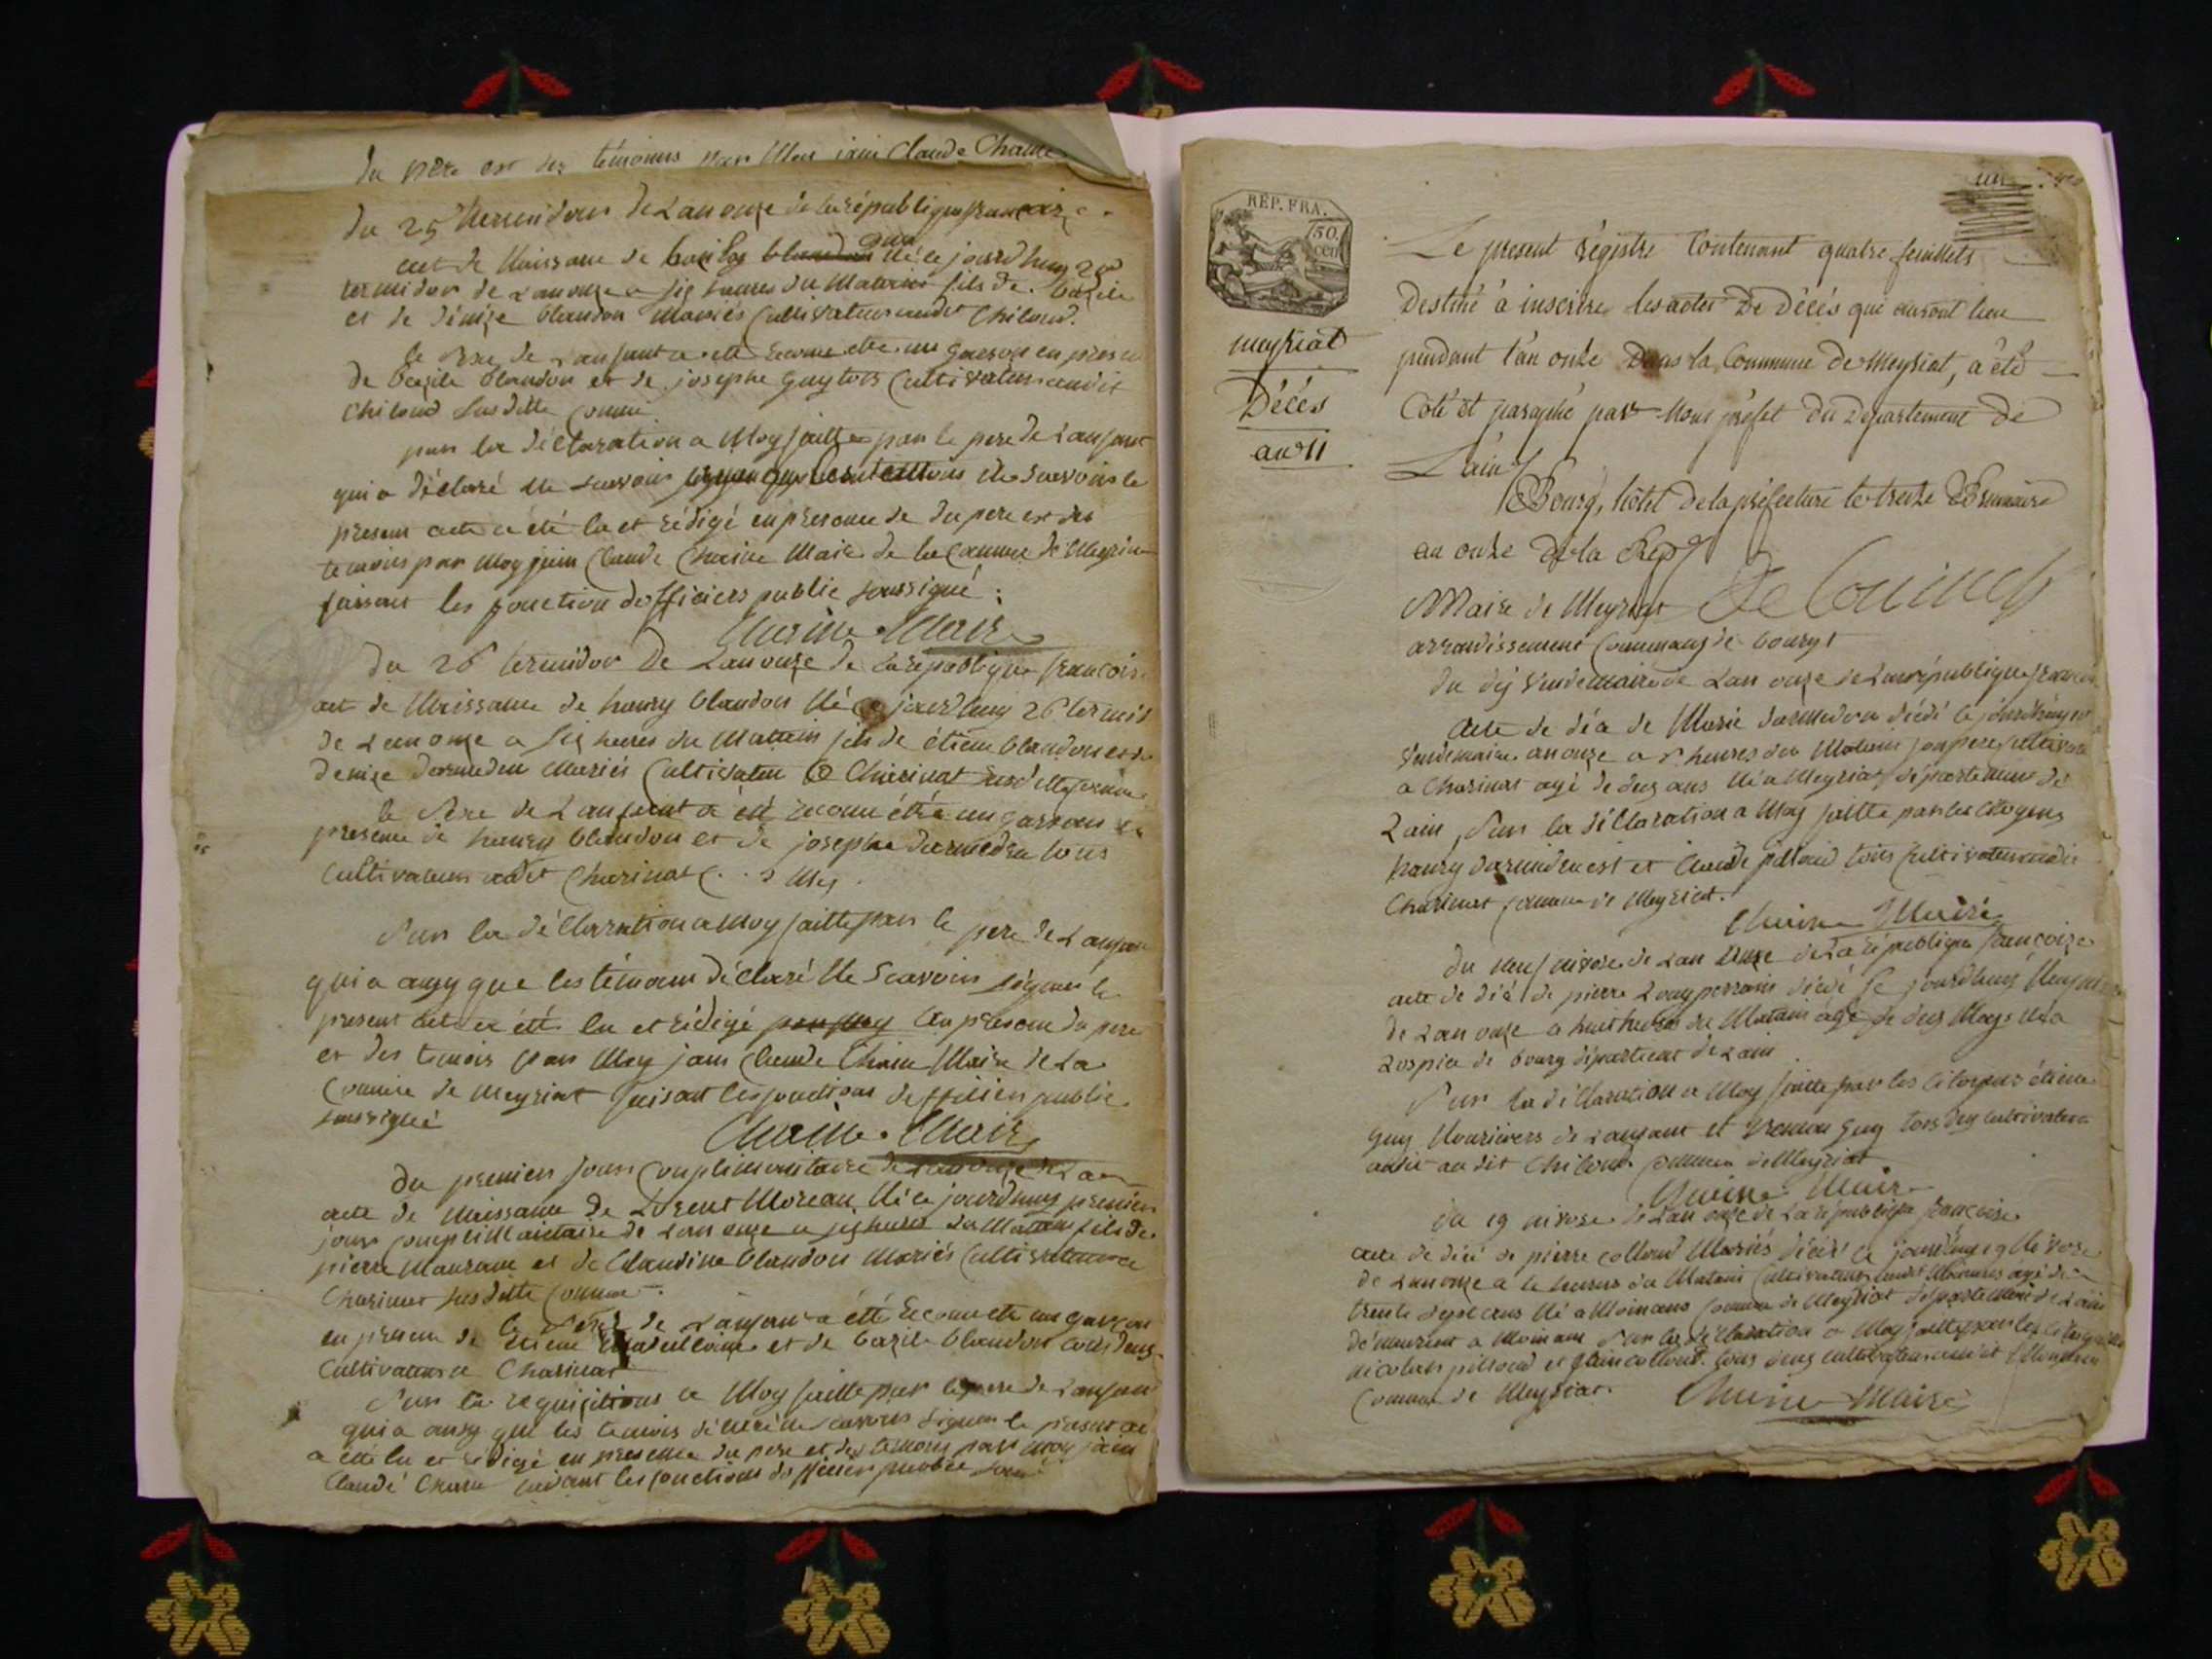 du père et des témoins par Moy jain Claude Chaine
du 25 Termidor de Lan onze de la république française
act de Naissance de Né ce jourdhuy 25
termidor de Lan onze a six heures du Matain fils de bazile
et de blandon Mariés Cultivateur audit Chiloud.
le Sexe de Lanfant a été reconu etre un garson en presence
de bazile blandon et de josephe guy tous Cultivateur audit
Chiloud susditte comune
sur la déclaration a Moy faitte par le pere de Lanfant
qui a déclaré Ne scavoir Ne scavoir le
present acte a été lu et rédigé en presence de du pere et des
temoins par Moy jain Claude Chaine Maire de la Comune de Meyriat
faisant les fonction dofficiers public soussigné :
Chaine Maire
du 26 termidor De Lan onze de La republique françoise
act de Naissance de henry blandon Né ce jourdhuy 26 termidor
de Lan onze a six heures du Matain fils de étiene blandon et de
denize darmedru Mariés Cultivateur a Charinat susditte comune
le Sexe de Lanfant a été reconu étre un garson en
presence de henry blandon et de josephe darmedru tous
Cultivateurs audit Charinat
Sur la déClaration a Moy faitte par le pere de Lanfant
qui a ansy que les témoins déclaré Ne Scavoir signer le
present acte a été lu et rédigé en presence du pere
et des temois par Moy jain Claude Chaine Maire de La
Comune de Meyriat faisant les fonctions dofficier public
soussigné
Chaine Maire
du premier jour Complimentaire de Lan onze de La
acte de Naissance de Lorent Moreau Né ce jourdhuy premier
jour Complimantaire de Lan onze a six heures du Matain fils de
pierre et de Claudine blandon Mariés Cultivateur a
Charinat susditte Comune
le Sexe de Lanfant a été reconu etre un garson
en presence de Etiene et de bazile blandon tous deux
Cultivateur a Charinat
Sur la requisitions a Moy faitte par le pere de Lanfant
qui a ansy que les temoins déclaré Ne scavoir signer le present acte
a été lu et rédigé en presence du pere et des temoins par moy jain
Claude Chaine faisant les fonctions dofficier public
RÉP. FRA.
50
cen
meyriat
Décés
an 11
un
Le present régistre Contenant quatre feuillets
Destiné à inscrire les actes De Décés qui auront lieu
pendant l'an onze Dans la Commune de Meyriat, a été
Coté et paraphé par Nous préfet Du Département De
L'ain
à Bourg, hôtel De la préfecture le treize Brumaire
an onze De la Rep.
Maire de Meyriat
arrondissement Communal de bourg
du dix vendemaire de Lan onze de La république françoise
Acte de déa de Marie darmedru dédé le jourdhuy
vendemaire an onze a heures du Matain son pere Cultivateur
a Charinat agé de dux ans Né a Meyriat département de
Lain, Sur la déClaration a Moy faitte par les Citoyens
henry darmedru et Claude pilloud tous Cultivateur audit
Charinat comune de Meyriat.
Chaine Maire
du neuf nivose de Lan onze de La République françoize
acte de déa de pierre dédé Ce jourdhuy Neuf nivose
de Lan onze a huit heures du Matain agé de dux Moys Né a
Lospice de bourg départemant de Lain
Sur la déClaration a Moy faitte par les Citoyens étiene
guy Nouriciers de Lanfant et guy tous deux Cultivateur
audit Chiloud comune de Meyriat
Chaine Maire
du 19 nivose de Lan onze de La republique françoise
acte de déa de pierre colloud Mariés dédé Ce jourdhuy 19 Nivose
de Lan onze a heures du Matain Cultivateur audit agé de
trente sept ans Né a comune de Meyriat département de Lain
démeurent a Sur la déClaration a Moy faitte par les Citoyens
nicolas pilloud et jain colloud tous deux cultivateur audit
Comune de Meyriat.
Chaine Maire